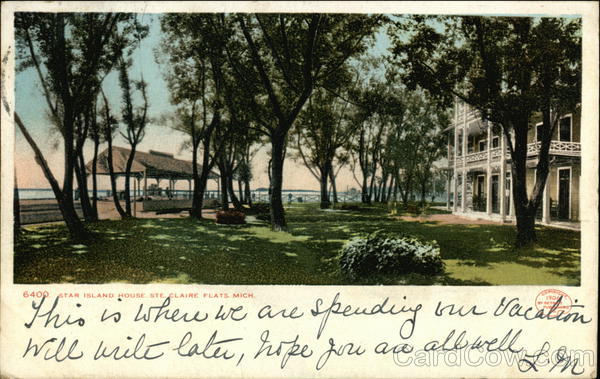 6400. STAR ISLAND HOUSE, STE. CLAIRE FLATS, MICH.
This is where we are spending our Vacation
Will write later, hope you are all well
L M
CardCow.com